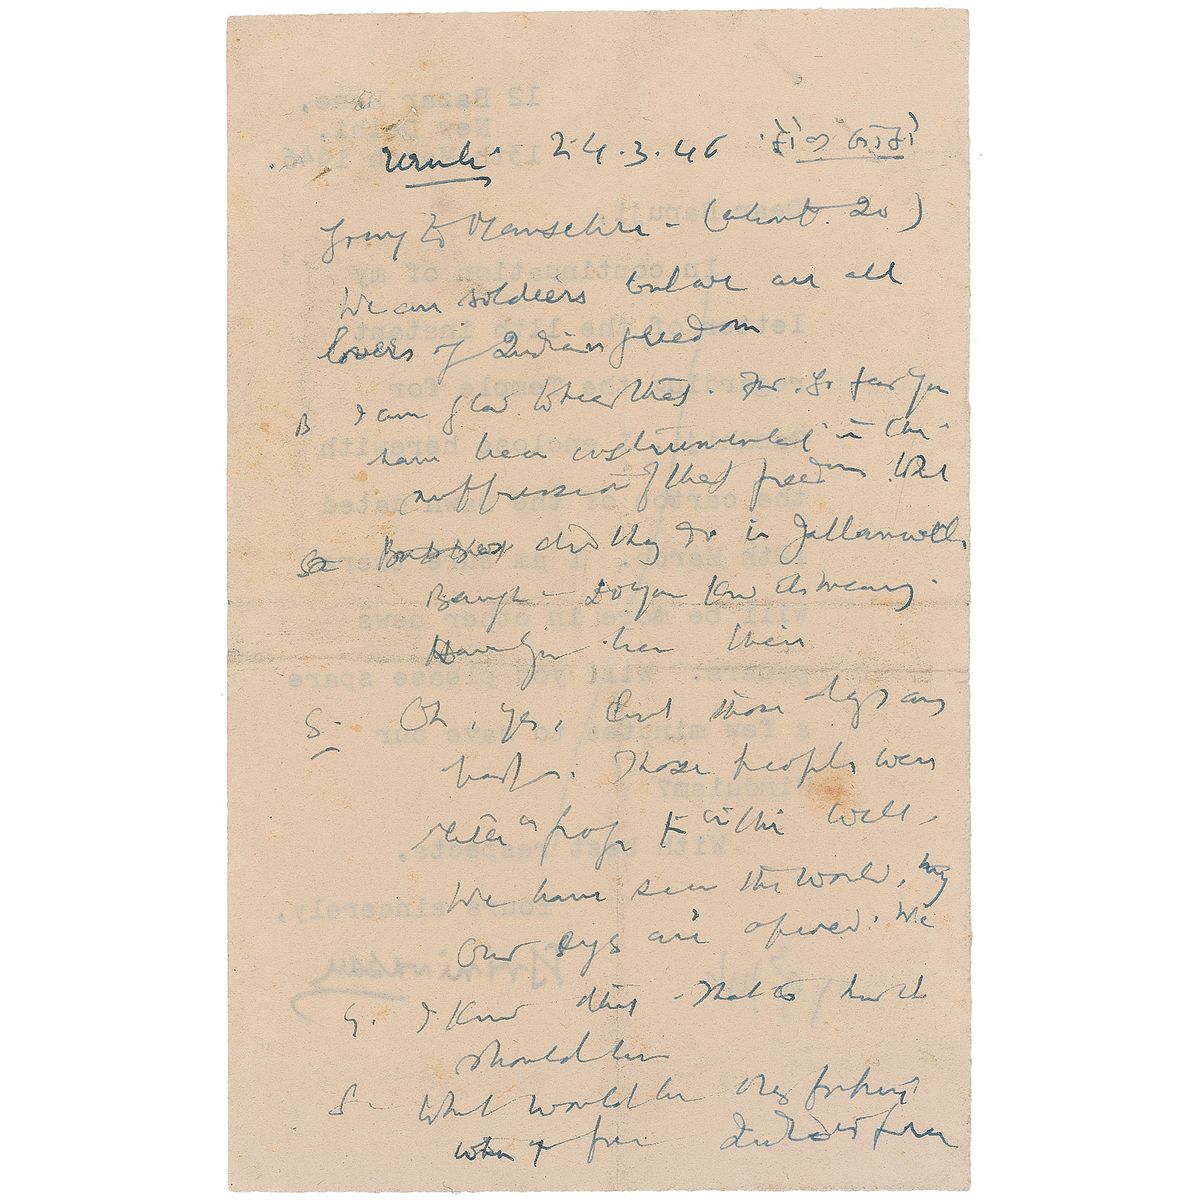 Uruli 24.3.46
going to Mansehra - (about 20)
We are soldiers but we are all
lovers of Indian freedom
I am glad to hear that. For so far you
have been instrumental in the
suppression of that freedom. What
did they do in Jallianwalla
Bagh - Do you know its meaning
Have you been there
S- Oh, yes, but those days are
past. Those people were
frogs in the well,
We have seen the world,
our eyes are opened. We
G. I know this - That is how it
should be
S- What would be our
when free India is free
12 Bazar Lane,
New Delhi,
13th March 1946.
Dear Bapuji,
In continuation of my
letter of the 11th instant
regarding the Temple for
enclose herewith
the cartoon of the Dawn dated
13th March. I am sure there
will be more in other news
papers. Will you please spare
a few minutes to save our
Hinduism?
With best respects,
Yours sincerely,